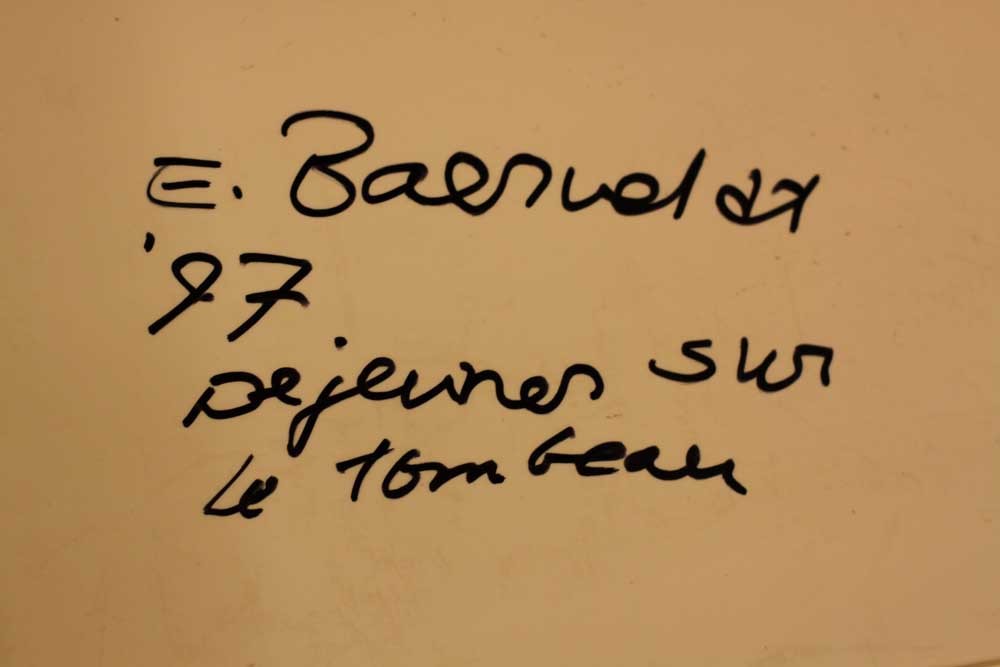 E.
'97
Dejeuner sur
le tombeau